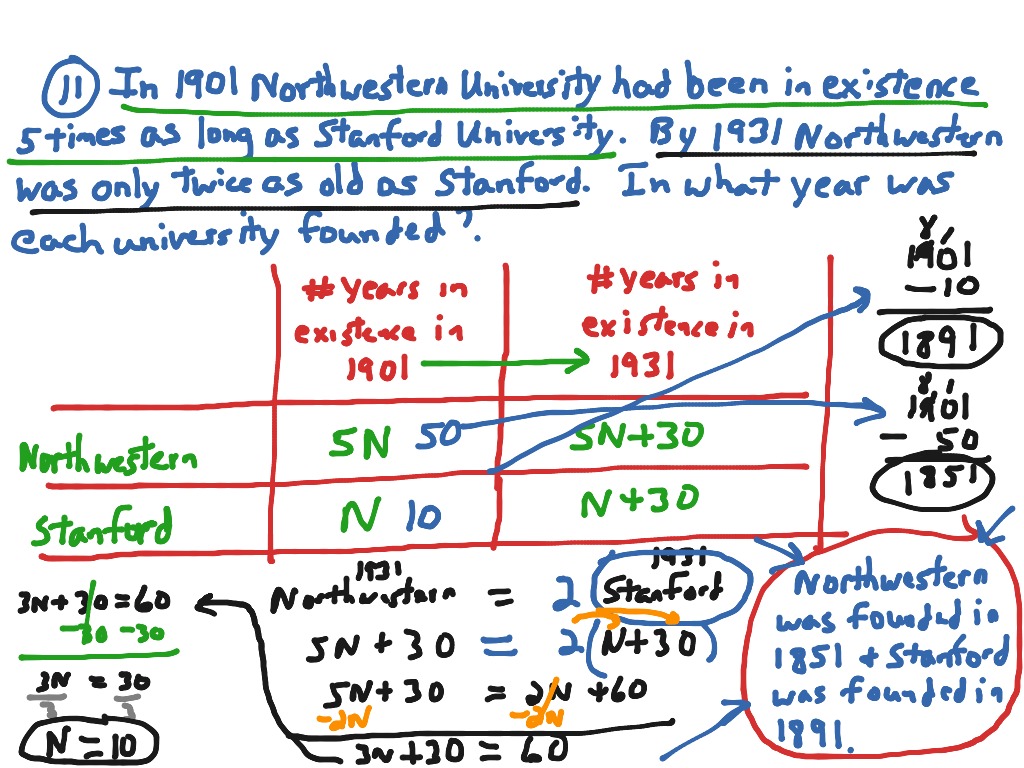 11 In 1901 Northwestern University had been in existence
5 times as long as Stanford University. By 1931 Northwestern
was only twice as old as Stanford. In what year was
each university founded?
# years in existence in 1901
# years in existence in 1931
Northwestern 5N 50 5N+30
Stanford N 10 N+30
1901
- 10
1891
1901
- 50
1851
1931 1931
Northwestern = 2 Stanford
5N + 30 = 2(N+30)
5N+30 = 2N +60
-2N -2N
3N+30 = 60
3N+30=60
-30 -30
3N = 30
3 3
N = 10
Northwestern
was founded in
1851 + Stanford
was founded in
1891.